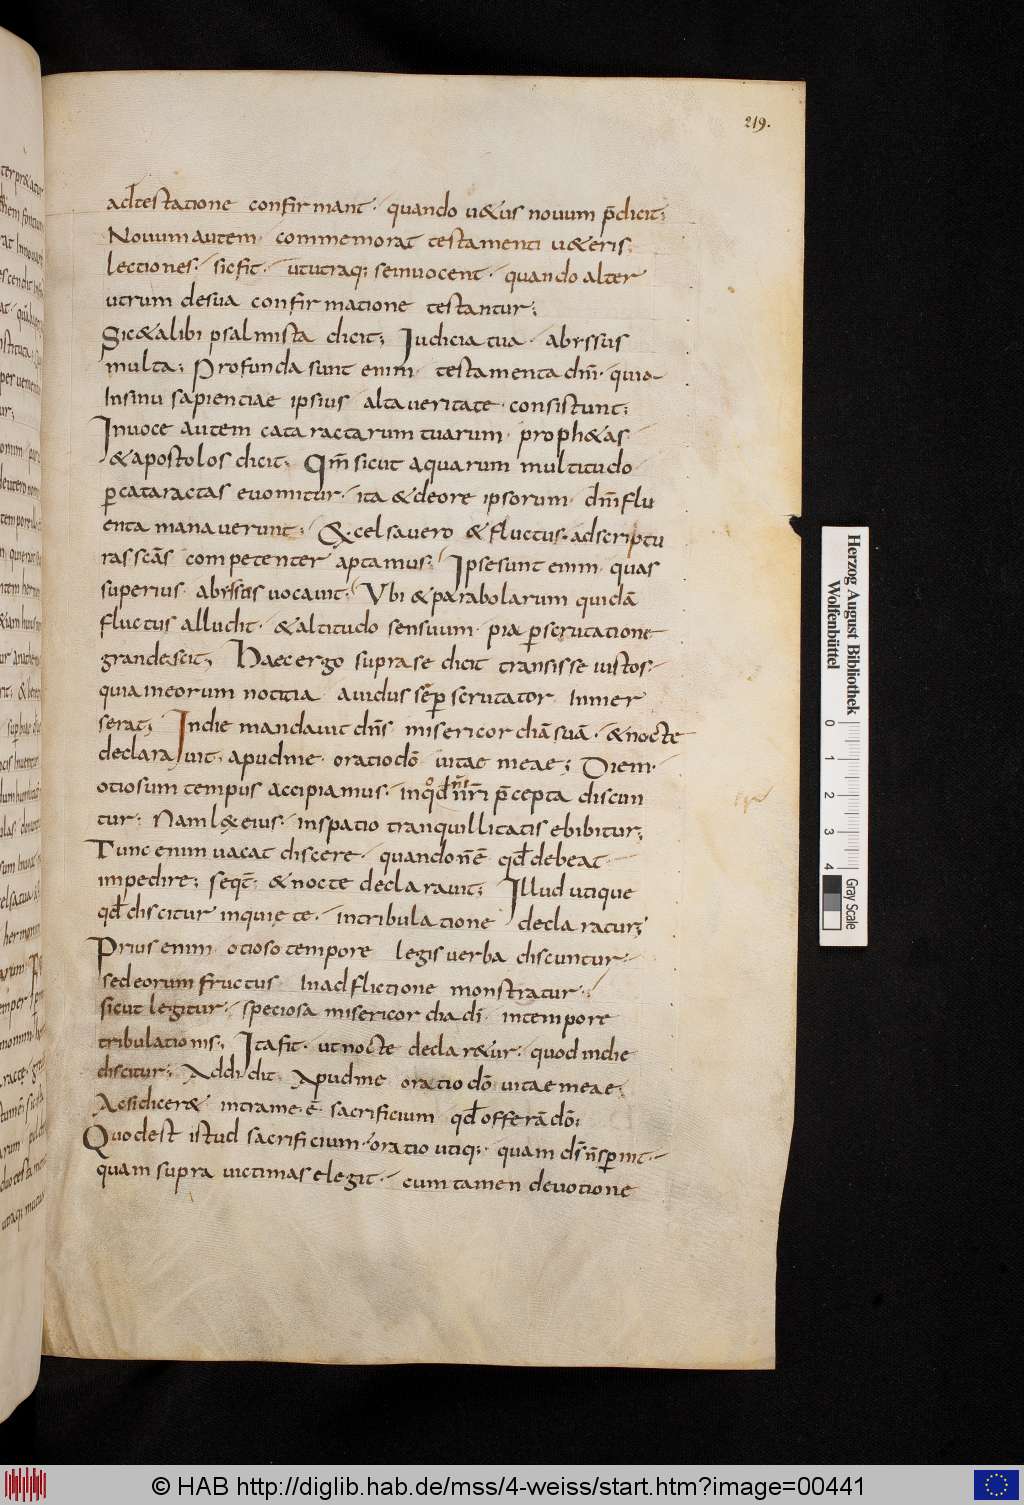 219.
adtestatione confirmant· quando u&us nouum p̄dicit;
Nouum autem· commemorat testamenti u&eris;
lectiones· sic fit· ut utraq; se inuocent· quando alter
utrum de sua confirmatione testantur;
Sic & alibi psalmista dicit; Iudicia tua· abyssus
multa; Profunda sunt enim· testamenta dn̄i· quia
In sinu sapientiae ipsius· alta ueritate· consistunt;
In uoce autem cataractarum tuarum· proph&as
& apostolos dicit; Qm̄ sicut aquarum multitudo
p̱ cataractas euomitur· ita & de ore ipsorum· dn̄i flu
enta manauerunt; Excelsa uero & fluctus· ad scriptu
ras sc̄as competenter aptamus; Ipse sunt enim· quas
superius· abyssos uocauit; Ubi & parabolarum quidā
fluctus alludit· & altitudo sensuum· pia p̱scrutatione
grandescit; Haec ergo supra se dicit transisse iustos·
quia in eorum notitia auidus sēp̱ scrutator Inmer
serat; In die mandauit dn̄s misericordiā suā· & nocte
declarauit· apud me· oratio dō uitae meae; Diem·
otiosum tempus accipiamus· in q̊ dn̄i nr̄i p̄cepta discun
tur; Nam lex eius· in spatio tranquillitatis ebibitur;
Tunc enim uacat discere· quando n̄ ē qđ debeat·
impedire; seqt̄· & nocte declarauit; Illud utique
qđ discitur in quiete· in tribulatione declaratur;
Prius enim· otioso tempore legis uerba discuntur·
sed eorum fructus In adflictione monstratur·
sicut legitur· speciosa misericordia dī· in tempore
tribulationis; Ita fit· ut nocte declar&ur· quod in die
discitur; Addidit· Apud me oratio dō uitae meae;
Ac si dicer&· intra me· ē· sacrificium qđ offerā dō;
Quod est istud sacrificium· oratio utiq;· quam dī n̄ sp̱nit·
quam supra uictimas elegit· cum tamen deuotione
Herzog August Bibliothek
Wolfenbüttel
0 1 2 3 4
Gray Scale
© HAB http://diglib.hab.de/mss/4-weiss/start.htm?image=00441